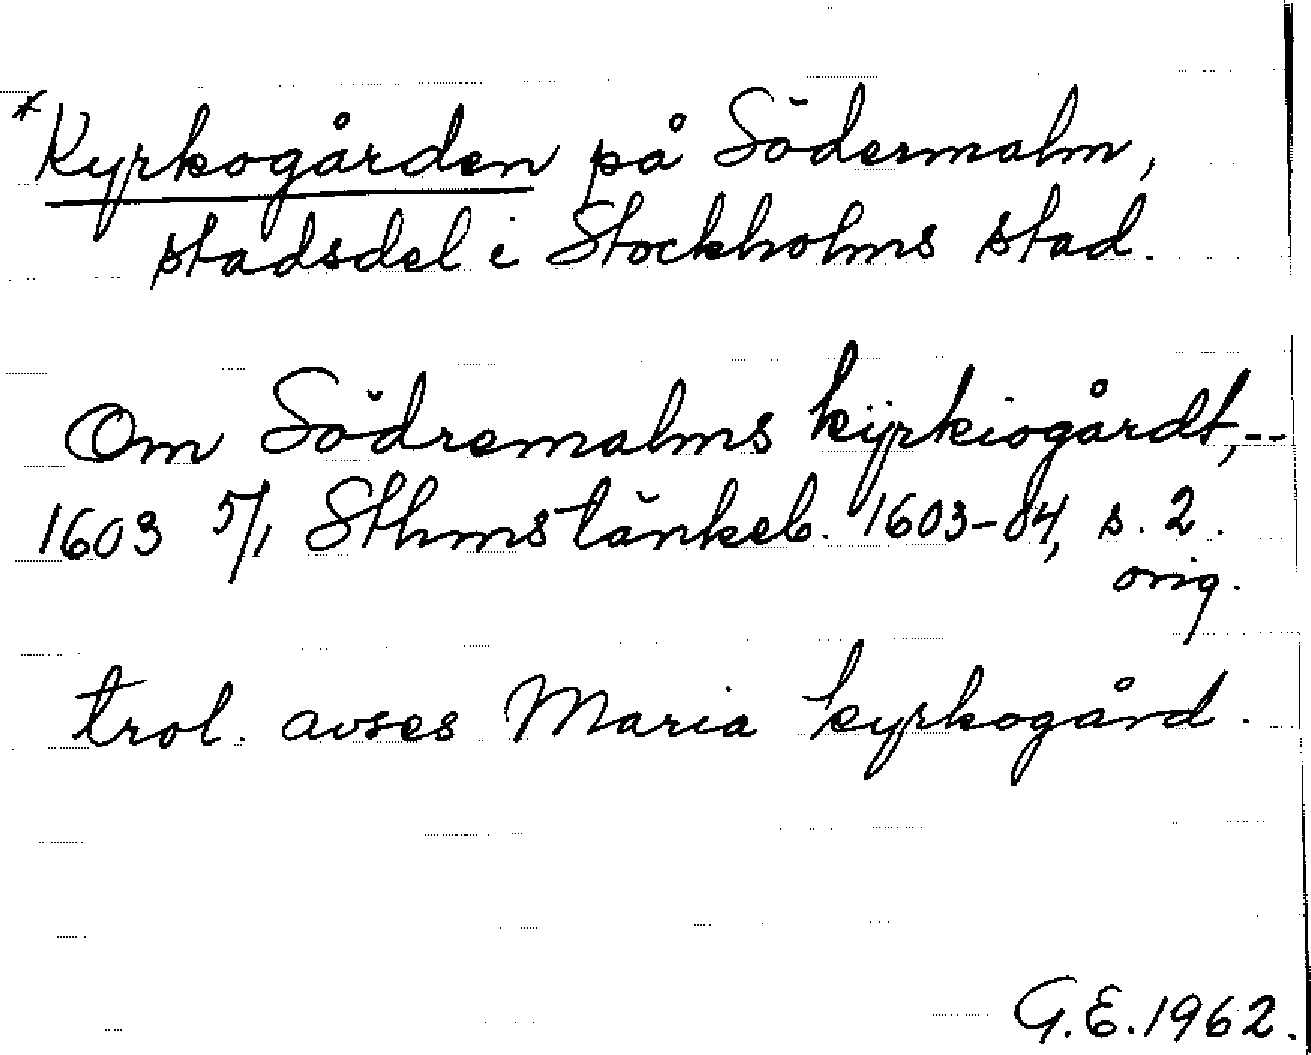 *Kyrkogården på Södermalm,
stadsdel i Stockholms stad.
Om Södremalms kÿrkiogårdt,--
1603 5/1 Sthmstänkeb. 1603-04, s. 2.
orig.
trol. avses Maria kyrkogård.
G.E. 1962.